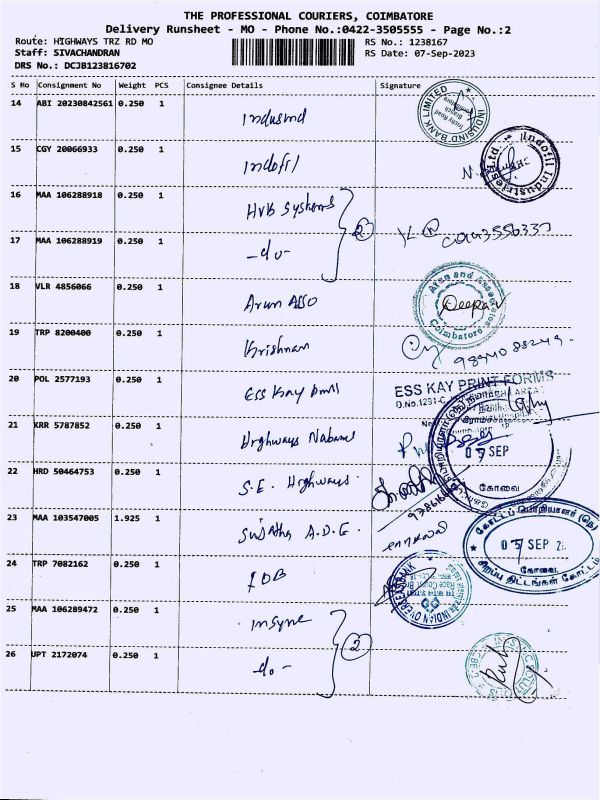 THE PROFESSIONAL COURIERS, COIMBATORE
Delivery Runsheet - MO - Phone No.:0422-3505555 - Page No.:2
Route: HIGHWAYS TRZ RD MO RS No.: 1238167
Staff: SIVACHANDRAN RS Date: 07-Sep-2023
DRS No.: DCJB123816702
S No Consignment No Weight PCS Consignee Details Signature
14 ABI 20230842561 0.250 1 Indusind
INDUSIND BANK LIMITED
15 CGY 20066933 0.250 1 Indofil
Indofil Industries Ltd.
16 MAA 106288918 0.250 1 HVB Systems
2
17 MAA 106288919 0.250 1 -do-
18 VLR 4856066 0.250 1 Arun ASSO
Arun and Associates
Coimbatore
Deepa
19 TRP 8200400 0.250 1 Krishnan
20 POL 2577193 0.250 1 ESS Kay
ESS KAY PRINT FORMS
D.No.1291-C
21 KRR 5787852 0.250 1 Highways
07 SEP
கோவை
22 HRD 50464753 0.250 1 S.E. Highways
23 MAA 103547005 1.925 1 Sujatha A.D.E.
07 SEP
கோவை
24 TRP 7082162 0.250 1 IOB
INDIAN OVERSEAS BANK
25 MAA 106289472 0.250 1 Insyne
2
26 UPT 2172074 0.250 1 -do-